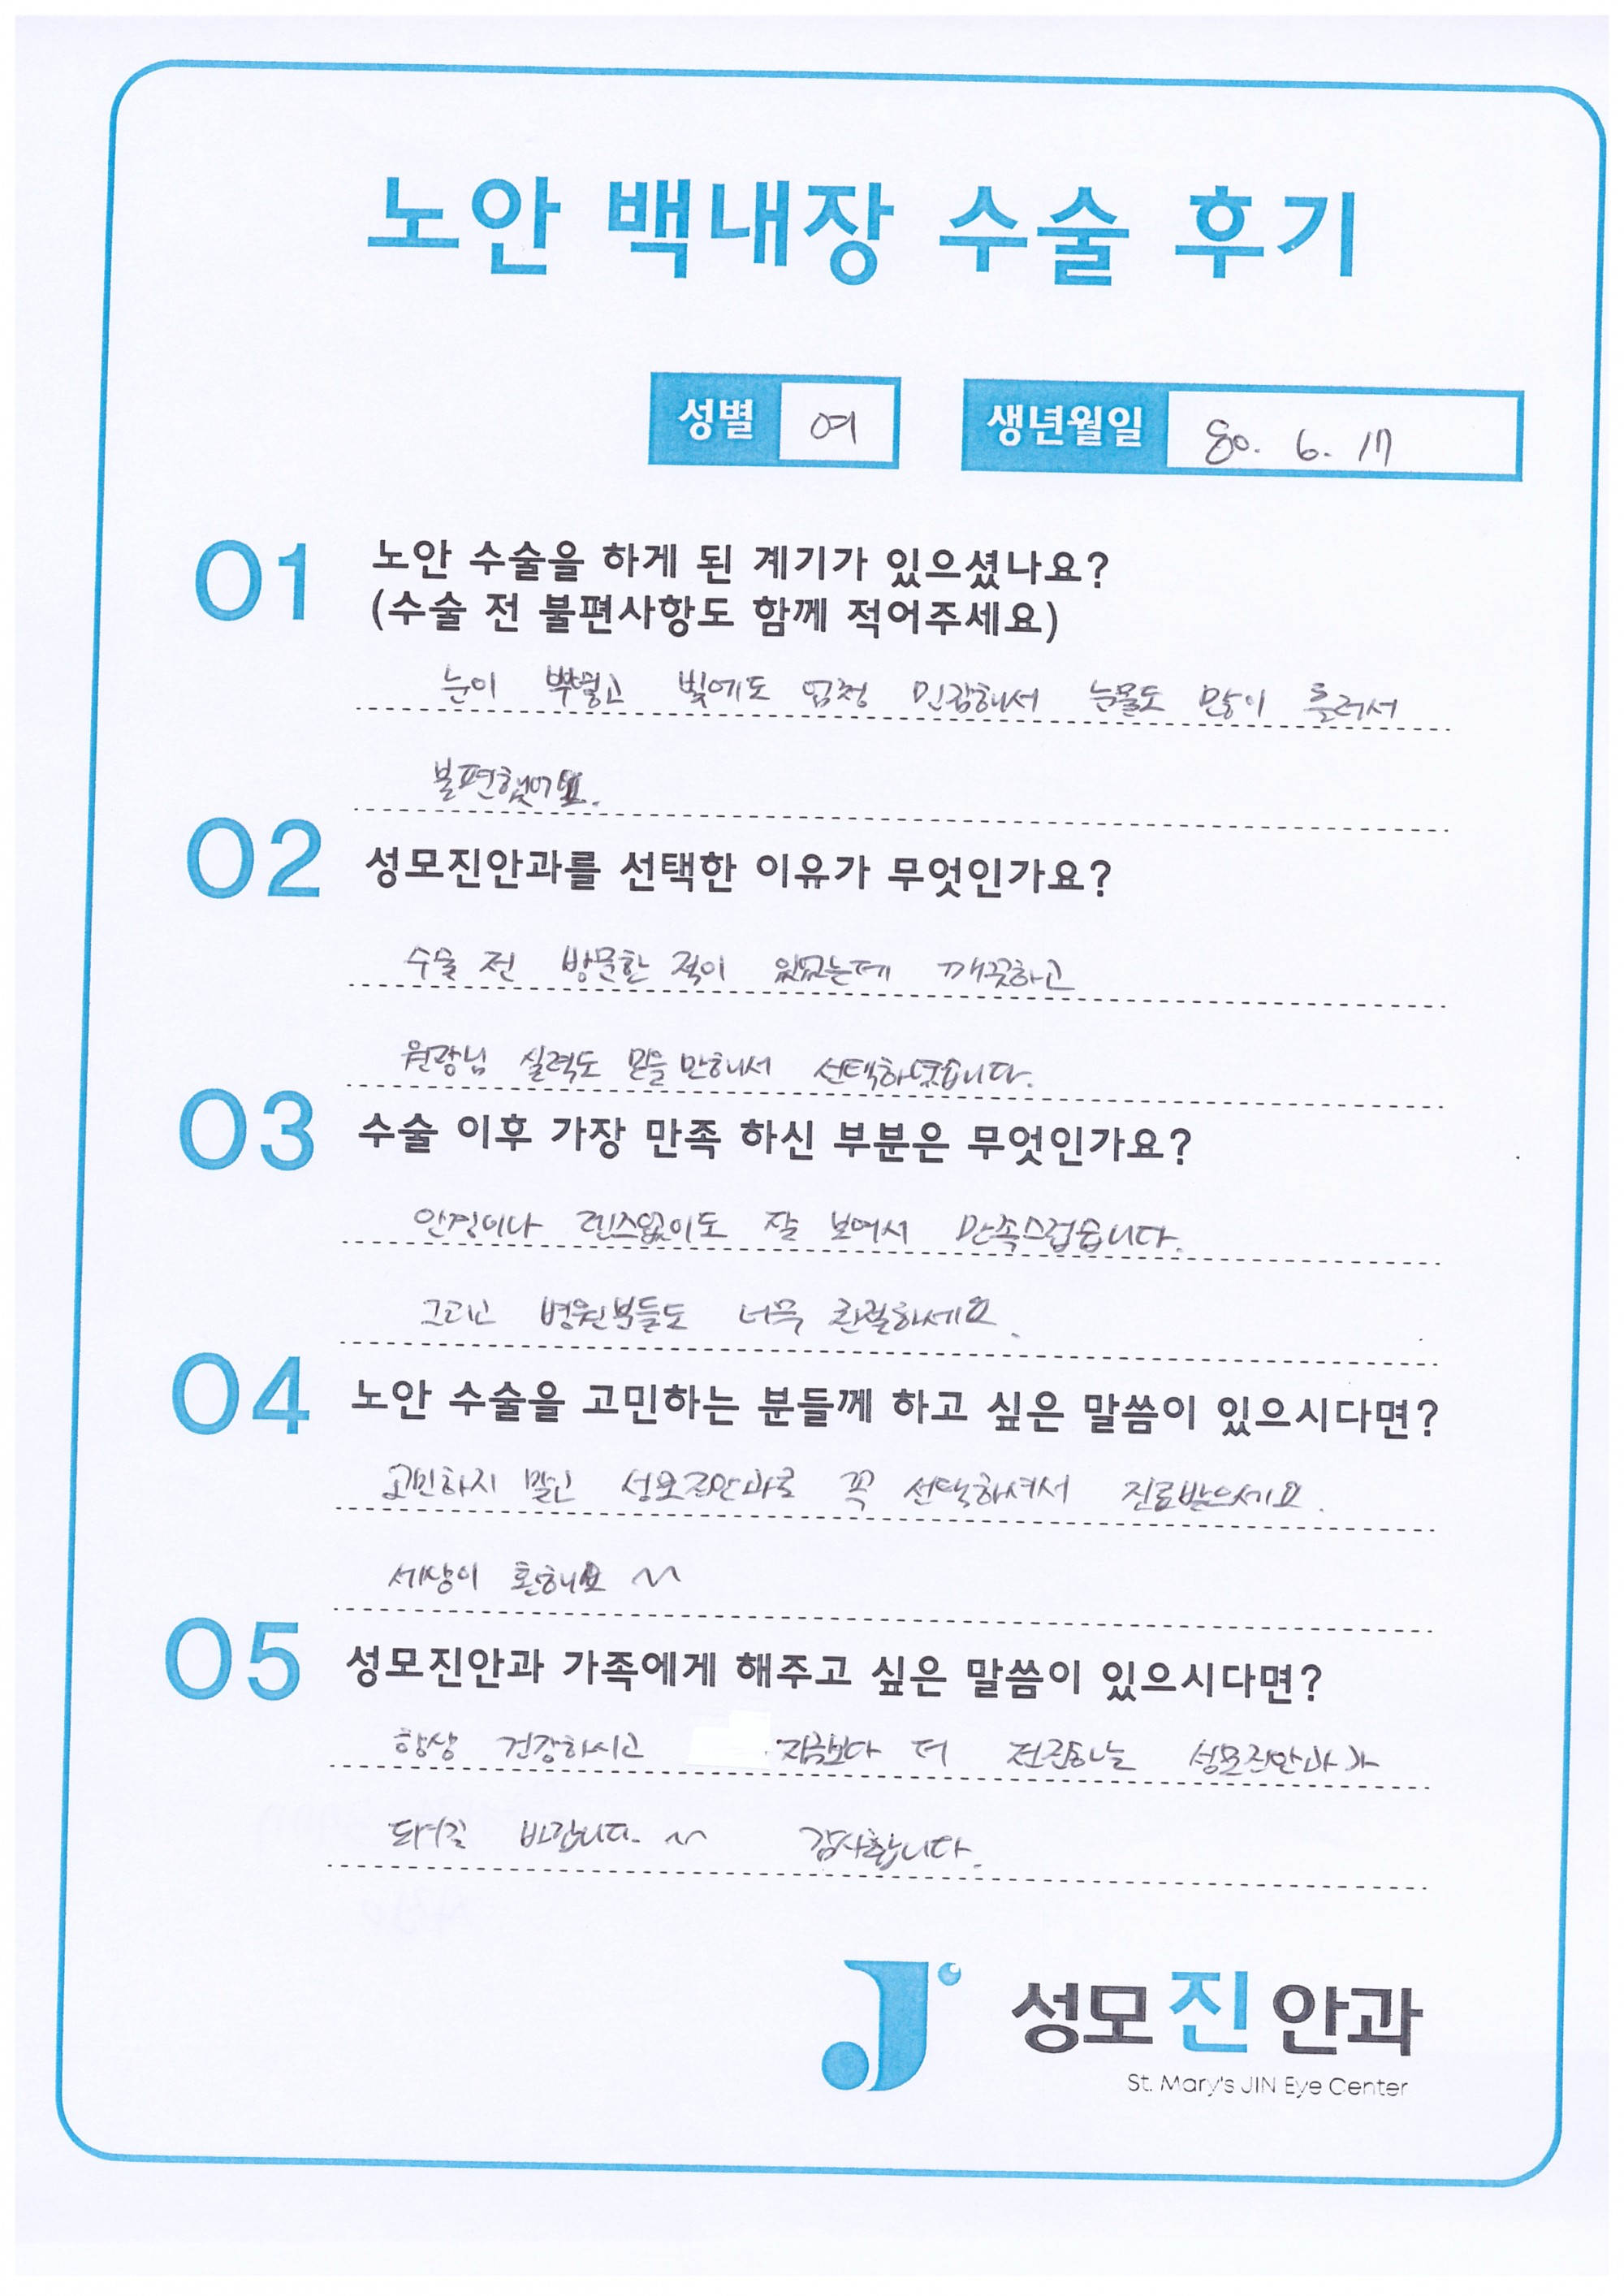 노안 백내장 수술 후기
성별 여 생년월일 80. 6. 17
01 노안 수술을 하게 된 계기가 있으셨나요?
(수술 전 불편사항도 함께 적어주세요)
눈이 뿌옇고 빛에도 엄청 민감해서 눈물도 많이 흘러서
불편했어요.
02 성모진안과를 선택한 이유가 무엇인가요?
수술 전 방문한 적이 있었는데 깨끗하고
원장님 실력도 믿을 만해서 선택하였습니다.
03 수술 이후 가장 만족 하신 부분은 무엇인가요?
안경이나 렌즈없이도 잘 보여서 만족스럽습니다.
그리고 병원분들도 너무 친절하세요.
04 노안 수술을 고민하는 분들께 하고 싶은 말씀이 있으시다면?
고민하지 말고 성모진안과로 꼭 선택하셔서 진료받으세요.
세상이 환해요 ~~
05 성모진안과 가족에게 해주고 싶은 말씀이 있으시다면?
항상 건강하시고 지금보다 더 전진하는 성모진안과가
되시길 바랍니다. ~~ 감사합니다.
성모진안과
St. Mary's JIN Eye Center